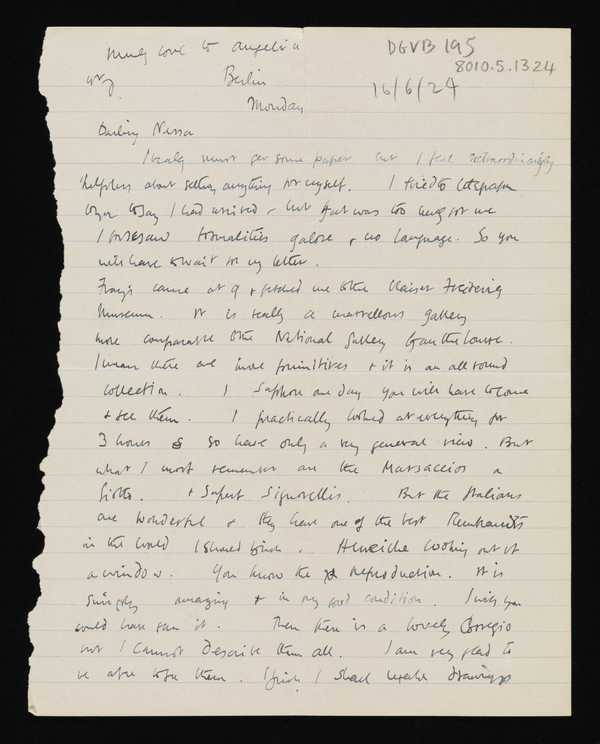 much love to Angelica
DGVB 195
8010.5.1324
Berlin
16/6/24
Monday
Darling Nessa
I really must get some paper but I feel extraordinarily
helpless about getting anything for myself. I tried to
to say I had arrived but that was too much for me
I foresaw formalities galore & no language. So you
will have to wait for my letter.
came at 9 & fetched me to the Kaiser Frederick
Museum. It is really a marvellous gallery
more comparable to the National Gallery than the Louvre.
I mean there are more primitives & it is an all round
collection. I suppose one day you will have to come
& see them. I practically looked at everything for
3 hours so have only a very general view. But
what I most remember are the Massaccios a
Giotto. & superb Signorellis. But the Italians
are wonderful & they have one of the best Rembrandts
in the world I should think. looking out of
a window. You know the reproduction. It is
simply amazing & in very good condition. I wish you
could have seen it. Then there is a lovely Corregio
but I cannot describe them all. I am very glad to
be able to see them. I think I shall drawings